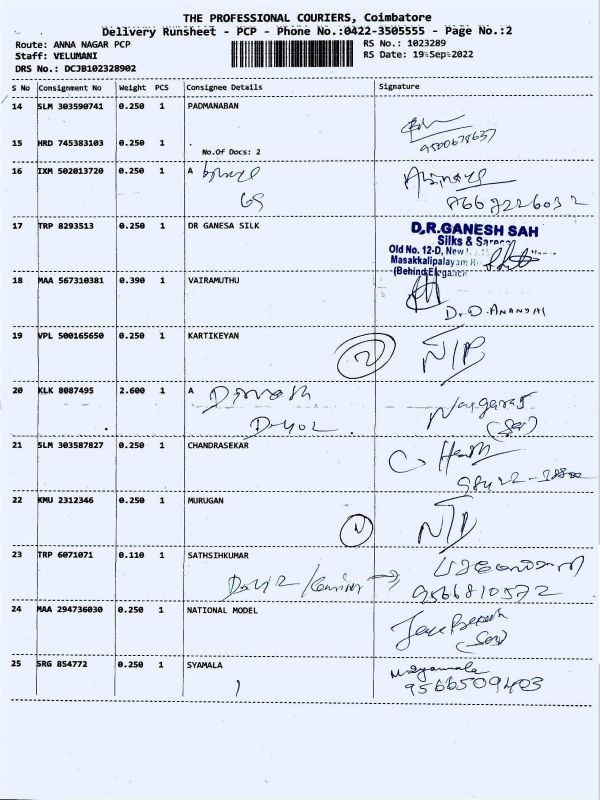 THE PROFESSIONAL COURIERS, Coimbatore
Delivery Runsheet - PCP - Phone No.:0422-3505555 - Page No.:2
Route: ANNA NAGAR PCP
RS No.: 1023289
Staff: VELUMANI
RS Date: 19-Sep-2022
DRS No.: DCJB102328902
S No Consignment No Weight PCS Consignee Details Signature
14 SLM 303590741 0.250 1 PADMANABAN
15 HRD 745383103 0.250 1 .
No.Of Docs: 2
16 IXM 502013720 0.250 1 A
8667226032
17 TRP 8293513 0.250 1 DR GANESA SILK
D.R.GANESH SAH
Silks & Sarees
Old No. 12-D, New
Masakkalipalayam
(Behind Elegance
18 MAA 567310381 0.390 1 VAIRAMUTHU
Dr. D. ANANDHI
19 VPL 500165650 0.250 1 KARTIKEYAN
N/P
20 KLK 8087495 2.600 1 A Dinesh
Nagaraj
21 SLM 303587827 0.250 1 CHANDRASEKAR
22 KMU 2312346 0.250 1 MURUGAN
N/P
23 TRP 6071071 0.110 1 SATHSIHKUMAR
9566810572
24 MAA 294736030 0.250 1 NATIONAL MODEL
25 SRG 854772 0.250 1 SYAMALA
9566509403